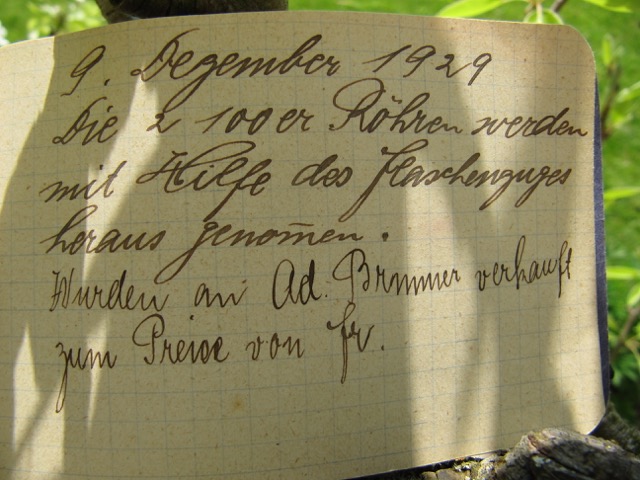 9. Dezember 1929
Die 2 100er Röhren werden
mit Hilfe des Flaschenzuges
heraus genom̄en.
Wurden an Ad. Brunner verkauft
zum Preise von fr.